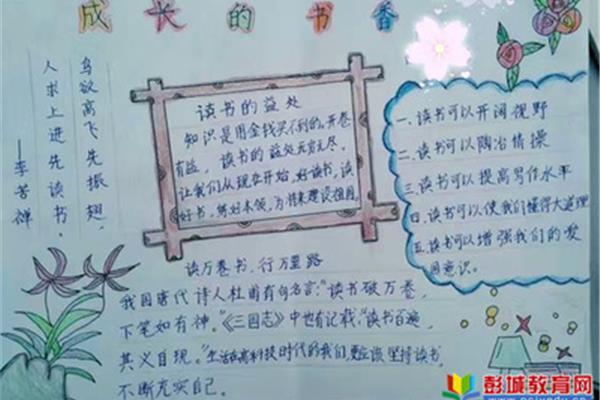 成长的书香
鸟欲高飞先振翅,
人求上进先读书。
——李苦禅
读书的益处
知识是用金钱买不到的。开卷
有益,读书的益处无穷无尽,
让我们从现在开始,好读书,读
好书,练好本领,为将来建设祖国。
一、读书可以开阔视野
二、读书可以陶冶情操
三、读书可以提高写作水平
四、读书可以使我们懂得大道理
五、读书可以增强我们的爱
国意识。
读万卷书,行万里路
我国唐代诗人杜甫有句名言:“读书破万卷,
下笔如有神。”《三国志》中也有记载:“读书百遍,
其义自现。”生活在高科技时代的我们,更应该坚持读书,
不断充实自己。
彭城教育网